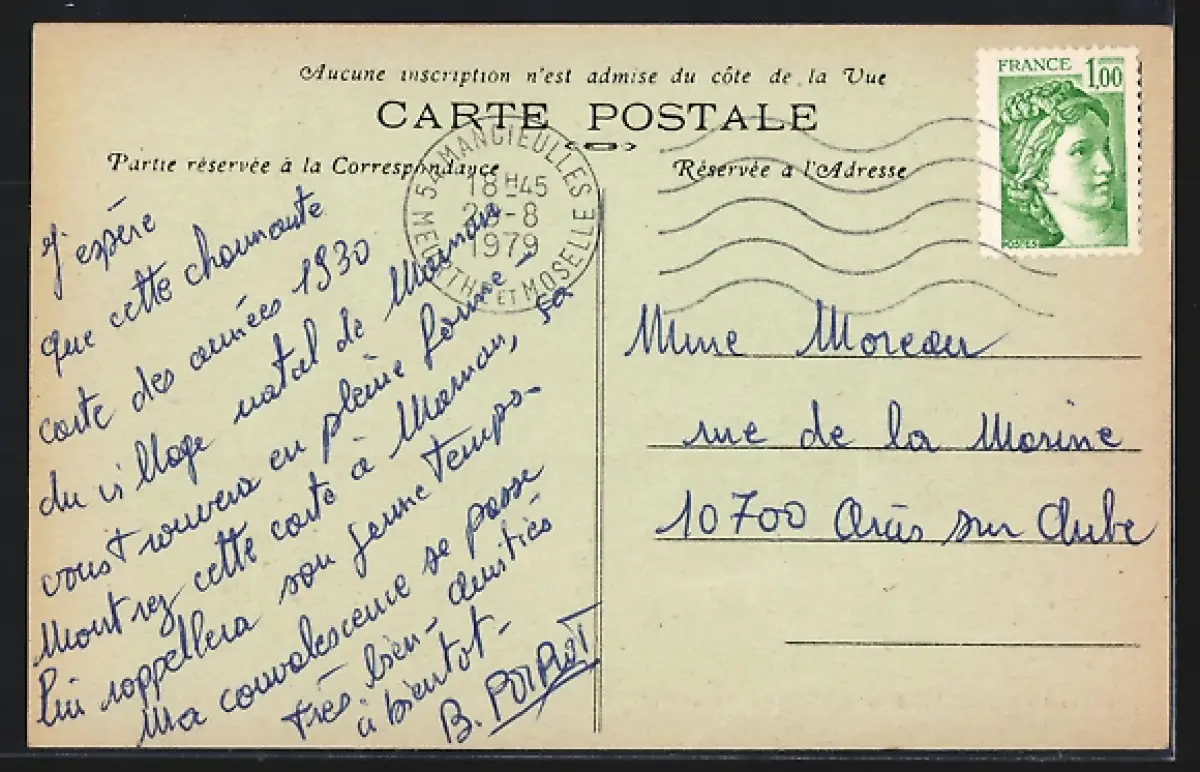 Aucune inscription n'est admise du côte de la Vue
CARTE POSTALE
Partie réservée à la Correspondance
Réservée a l'Adresse
FRANCE 1,00
54 MANCIEULLES
18H45
-8
1979
MEURTHE ET MOSELLE
J'espère
que cette charmante
carte des années 1930
du village natal de Maman
vous trouvera en pleine forme -
Montrez cette carte à Maman, ça
lui rappellera son jeune temps.
Ma convalescence se passe
très bien - Amitiés
à bientot -
B. POIROT
Mme Moreau
rue de la Marine
10700 Arcis sur Aube